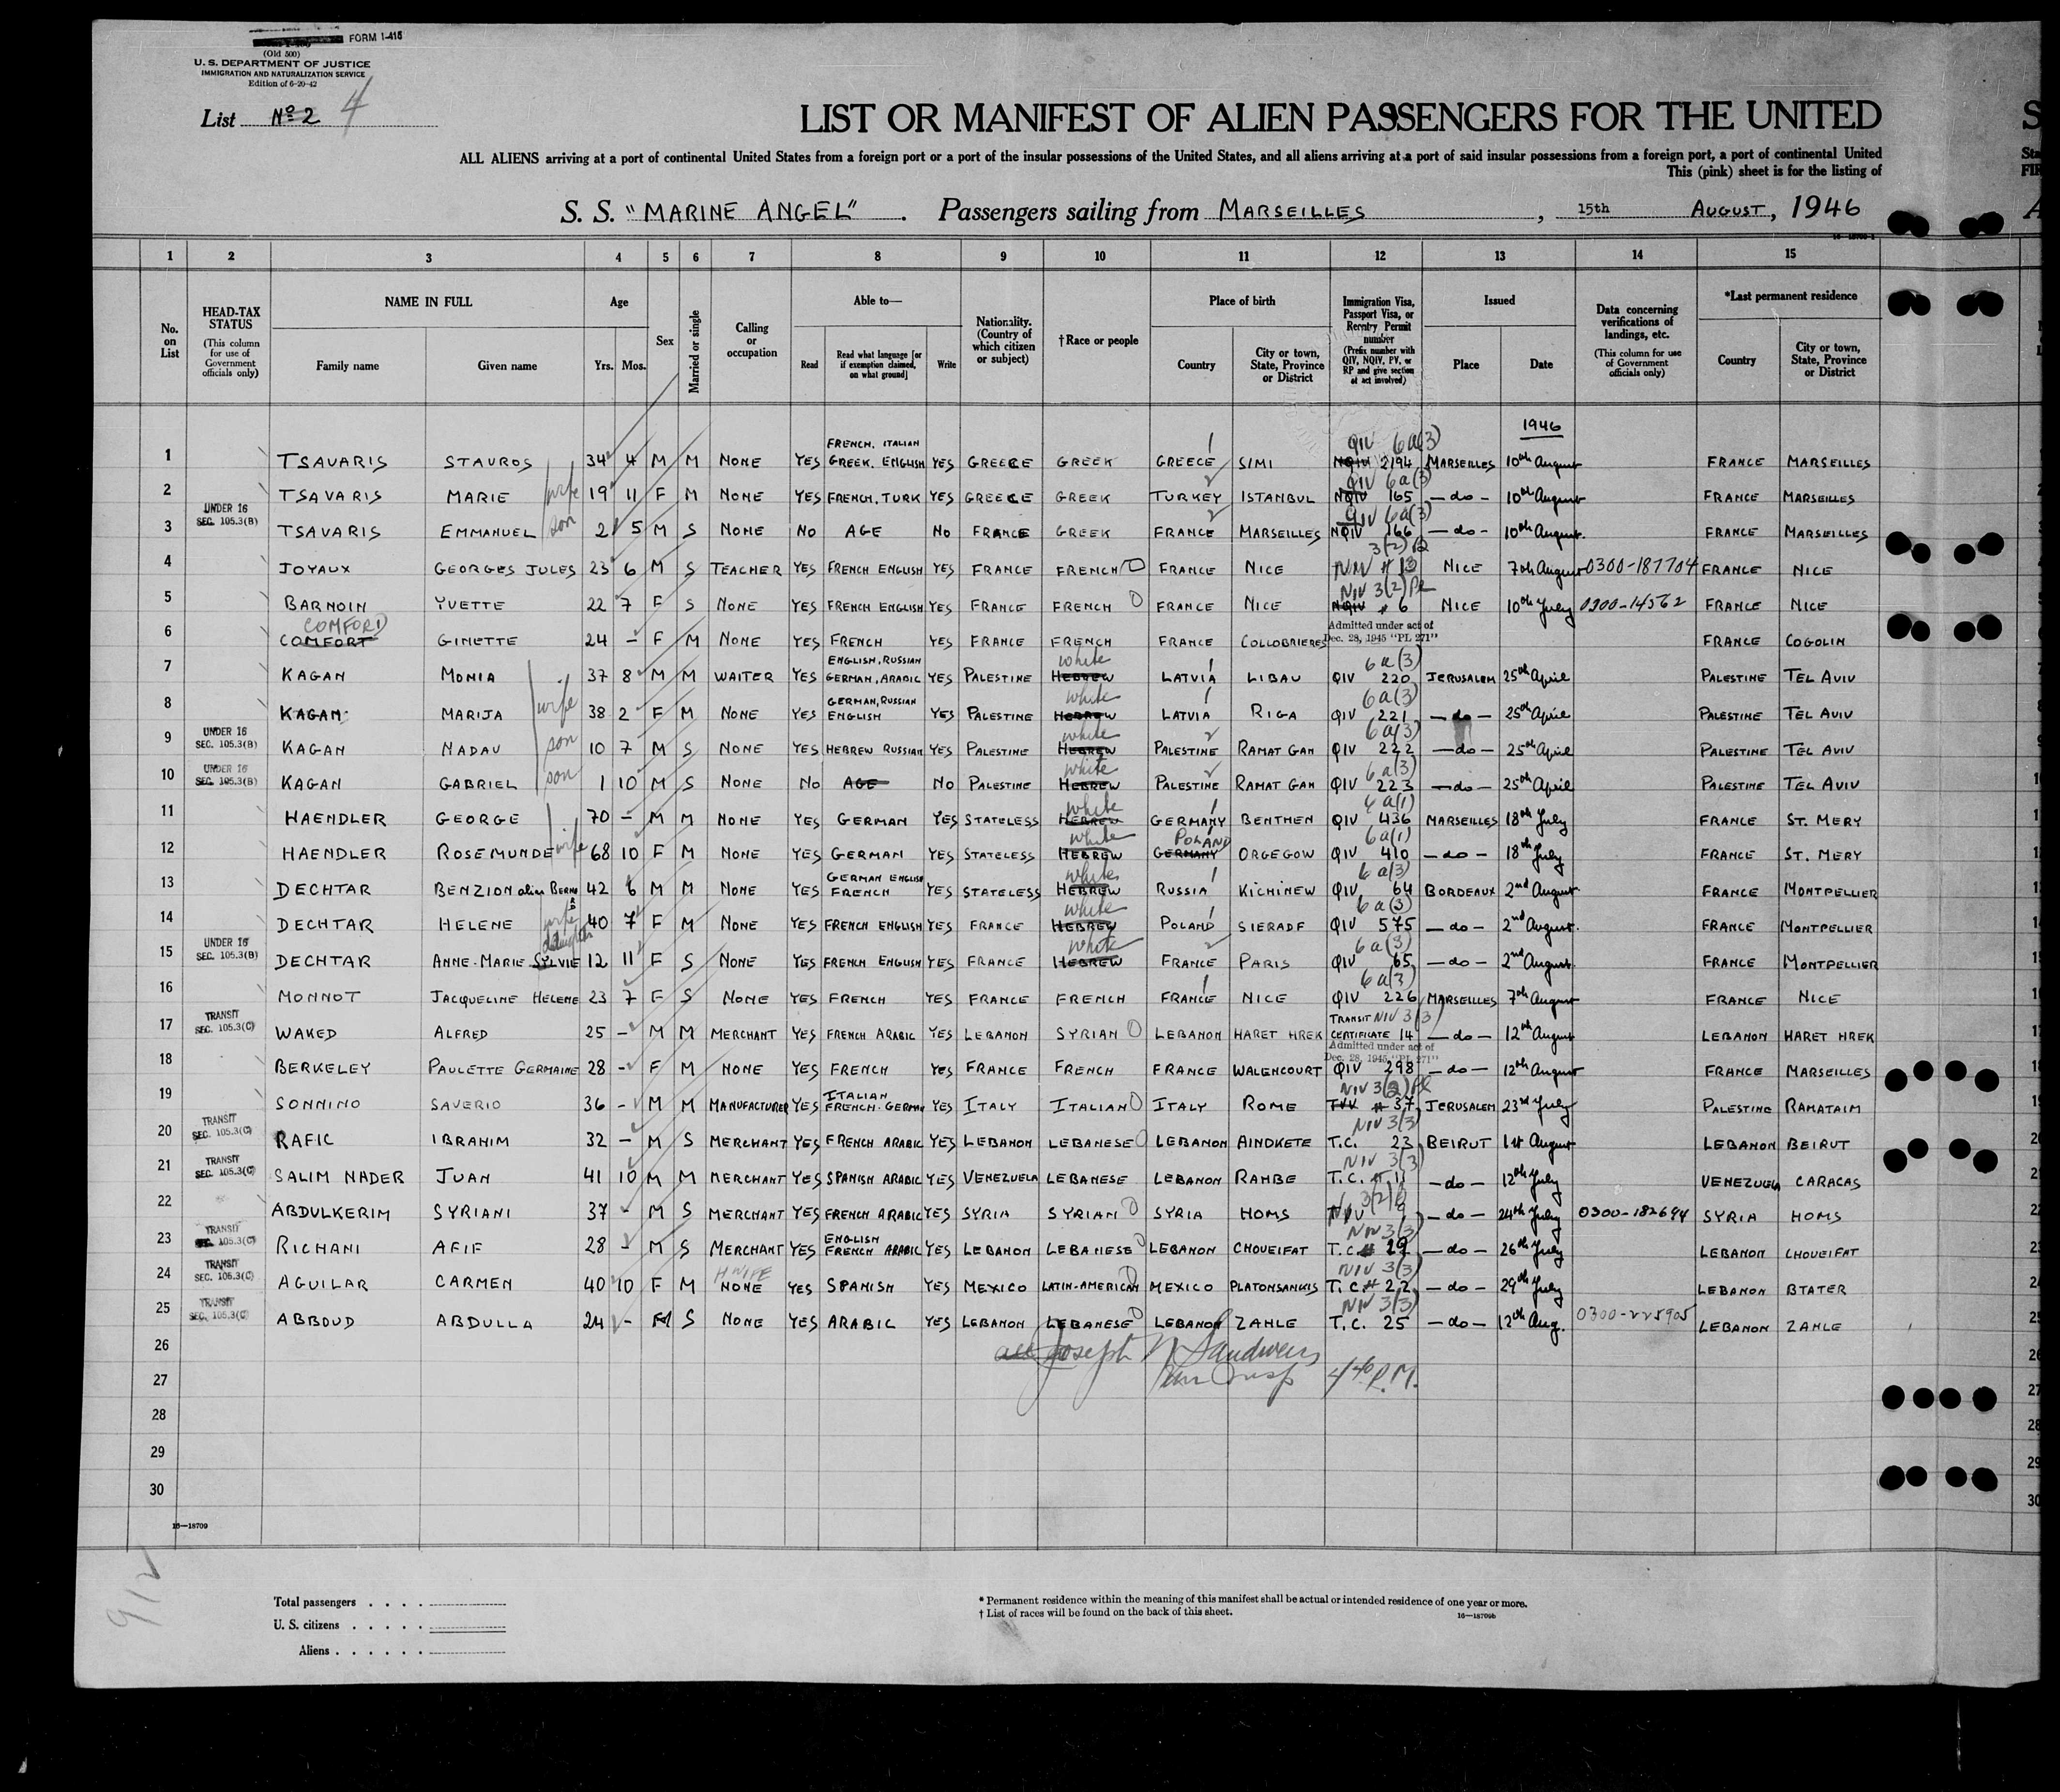 FORM I-415
(Old 500)
U. S. DEPARTMENT OF JUSTICE
IMMIGRATION AND NATURALIZATION SERVICE
Edition of 6-20-42
List Nº 2 4
LIST OR MANIFEST OF ALIEN PASSENGERS FOR THE UNITED
ALL ALIENS arriving at a port of continental United States from a foreign port or a port of the insular possessions of the United States, and all aliens arriving at a port of said insular possessions from a foreign port, a port of continental United
This (pink) sheet is for the listing of
S. S. "MARINE ANGEL" . Passengers sailing from MARSEILLES , 15th AUGUST, 1946
1 2 3 4 5 6 7 8 9 10 11 12 13 14 15
No. on List
HEAD-TAX STATUS (This column for use of Government officials only)
NAME IN FULL Family name Given name
Age Yrs. Mos.
Sex
Married or single
Calling or occupation
Able to— Read Read what language [or if exemption claimed, on what ground] Write
Nationality. (Country of which citizen or subject)
†Race or people
Place of birth Country City or town, State, Province or District
Immigration Visa, Passport Visa, or Reentry Permit number (Prefix number with QIV, NQIV, PV, or RP and give section of act involved)
Issued Place Date
Data concerning verifications of landings, etc. (This column for use of Government officials only)
*Last permanent residence Country City or town, State, Province or District
1946
1 TSAVARIS STAUROS 34 4 M M NONE YES FRENCH, ITALIAN GREEK, ENGLISH YES GREECE GREEK GREECE SIMI QIV 6a(3) NQIV 2194 MARSEILLES 10th August FRANCE MARSEILLES
2 TSAVARIS MARIE wife 19 11 F M NONE YES FRENCH, TURK YES GREECE GREEK TURKEY ISTANBUL QIV 6a(3) NQIV 165 —do— 10th August FRANCE MARSEILLES
3 UNDER 16 SEC. 105.3(B) TSAVARIS EMMANUEL son 2 5 M S NONE NO AGE NO FRANCE GREEK FRANCE MARSEILLES QIV 6a(3) NQIV 166 —do— 10th August FRANCE MARSEILLES
4 JOYAUX GEORGES JULES 23 6 M S TEACHER YES FRENCH ENGLISH YES FRANCE FRENCH FRANCE NICE 3(2) NICE 7th August 0300-187704 FRANCE NICE
5 BARNOIN YVETTE 22 7 F S NONE YES FRENCH ENGLISH YES FRANCE FRENCH FRANCE NICE NIV 3(2) NQIV # 6 NICE 10th July 0300-14562 FRANCE NICE
6 COMFORD COMFORT GINETTE 24 – F M NONE YES FRENCH YES FRANCE FRENCH FRANCE COLLOBRIERES Admitted under act of Dec. 28, 1945 "PL 271" FRANCE COGOLIN
7 KAGAN MONIA 37 8 M M WAITER YES ENGLISH, RUSSIAN GERMAN, ARABIC YES PALESTINE HEBREW white LATVIA LIBAU 6a(3) QIV 220 JERUSALEM 25th April PALESTINE TEL AVIV
8 KAGAN MARIJA wife 38 2 F M NONE YES GERMAN, RUSSIAN ENGLISH YES PALESTINE HEBREW white LATVIA RIGA 6a(3) QIV 221 —do— 25th April PALESTINE TEL AVIV
9 UNDER 16 SEC. 105.3(B) KAGAN NADAV son 10 7 M S NONE YES HEBREW RUSSIAN YES PALESTINE HEBREW white PALESTINE RAMAT GAN 6a(3) QIV 222 —do— 25th April PALESTINE TEL AVIV
10 UNDER 16 SEC. 105.3(B) KAGAN GABRIEL son 1 10 M S NONE NO AGE NO PALESTINE HEBREW white PALESTINE RAMAT GAN 6a(3) QIV 223 —do— 25th April PALESTINE TEL AVIV
11 HAENDLER GEORGE 70 – M M NONE YES GERMAN YES STATELESS HEBREW white GERMANY BENTHEN 6a(1) QIV 436 MARSEILLES 18th July FRANCE ST. MERY
12 HAENDLER ROSEMUNDE wife 68 10 F M NONE YES GERMAN YES STATELESS HEBREW white POLAND GERMANY ORGEGOW 6a(1) QIV 410 —do— 18th July FRANCE ST. MERY
13 DECHTAR BENZION alias 42 6 M M NONE YES GERMAN ENGLISH FRENCH YES STATELESS HEBREW white RUSSIA KICHINEW 6a(3) QIV 64 BORDEAUX 2nd August FRANCE MONTPELLIER
14 DECHTAR HELENE wife 40 7 F M NONE YES FRENCH ENGLISH YES FRANCE HEBREW white POLAND SIERADF 6a(3) QIV 575 —do— 2nd August. FRANCE MONTPELLIER
15 UNDER 16 SEC. 105.3(B) DECHTAR ANNE-MARIE SYLVIE daughter 12 11 F S NONE YES FRENCH ENGLISH YES FRANCE HEBREW white FRANCE PARIS 6a(3) QIV 65 —do— 2nd August FRANCE MONTPELLIER
16 MONNOT JACQUELINE HELENE 23 7 F S NONE YES FRENCH YES FRANCE FRENCH FRANCE NICE 6a(3) QIV 226 MARSEILLES 7th August FRANCE NICE
17 TRANSIT SEC. 105.3(C) WAKED ALFRED 25 – M M MERCHANT YES FRENCH ARABIC YES LEBANON SYRIAN LEBANON HARET HREK TRANSIT NIV 3(3) CERTIFICATE 14 —do— 12th August LEBANON HARET HREK
18 BERKELEY PAULETTE GERMAINE 28 – F M NONE YES FRENCH YES FRANCE FRENCH FRANCE WALENCOURT Admitted under act of Dec. 28, 1945 "PL 271" QIV 298 —do— 12th August FRANCE MARSEILLES
19 SONNINO SAVERIO 36 – M M MANUFACTURER YES ITALIAN FRENCH-GERMAN YES ITALY ITALIAN ITALY ROME NIV 3(2) # 37 JERUSALEM 23rd July PALESTINE RAMATAIM
20 TRANSIT SEC. 105.3(C) RAFIC IBRAHIM 32 – M S MERCHANT YES FRENCH ARABIC YES LEBANON LEBANESE LEBANON AINDKETE NIV 3(3) T.C. 23 BEIRUT 1st August LEBANON BEIRUT
21 TRANSIT SEC. 105.3(C) SALIM NADER JUAN 41 10 M M MERCHANT YES SPANISH ARABIC YES VENEZUELA LEBANESE LEBANON RAMBE NIV 3(3) T.C. # 11 —do— 12th July VENEZUELA CARACAS
22 ABDULKERIM SYRIANI 37 – M S MERCHANT YES FRENCH ARABIC YES SYRIA SYRIAN SYRIA HOMS NIV 3(2) —do— 24th July 0300-182694 SYRIA HOMS
23 TRANSIT SEC. 105.3(C) RICHANI AFIF 28 – M S MERCHANT YES ENGLISH FRENCH ARABIC YES LEBANON LEBANESE LEBANON CHOUEIFAT NIV 3(3) T.C.# 19 —do— 26th July LEBANON CHOUEIFAT
24 TRANSIT SEC. 105.3(C) AGUILAR CARMEN 40 10 F M HWIFE NONE YES SPANISH YES MEXICO LATIN-AMERICAN MEXICO PLATONSANKIS NIV 3(3) T.C# 22 —do— 29th July LEBANON BTATER
25 TRANSIT SEC. 105.3(C) ABBOUD ABDULLA 24 – M S NONE YES ARABIC YES LEBANON LEBANESE LEBANON ZAHLE NIV 3(3) T.C. 25 —do— 12th Aug. 0300-225905 LEBANON ZAHLE
26 Joseph
27 4 40 P.M.
28
29
30
16—18709
912
Total passengers . . . .
U. S. citizens . . . . .
Aliens . . . . . .
* Permanent residence within the meaning of this manifest shall be actual or intended residence of one year or more.
† List of races will be found on the back of this sheet.
16—18709b